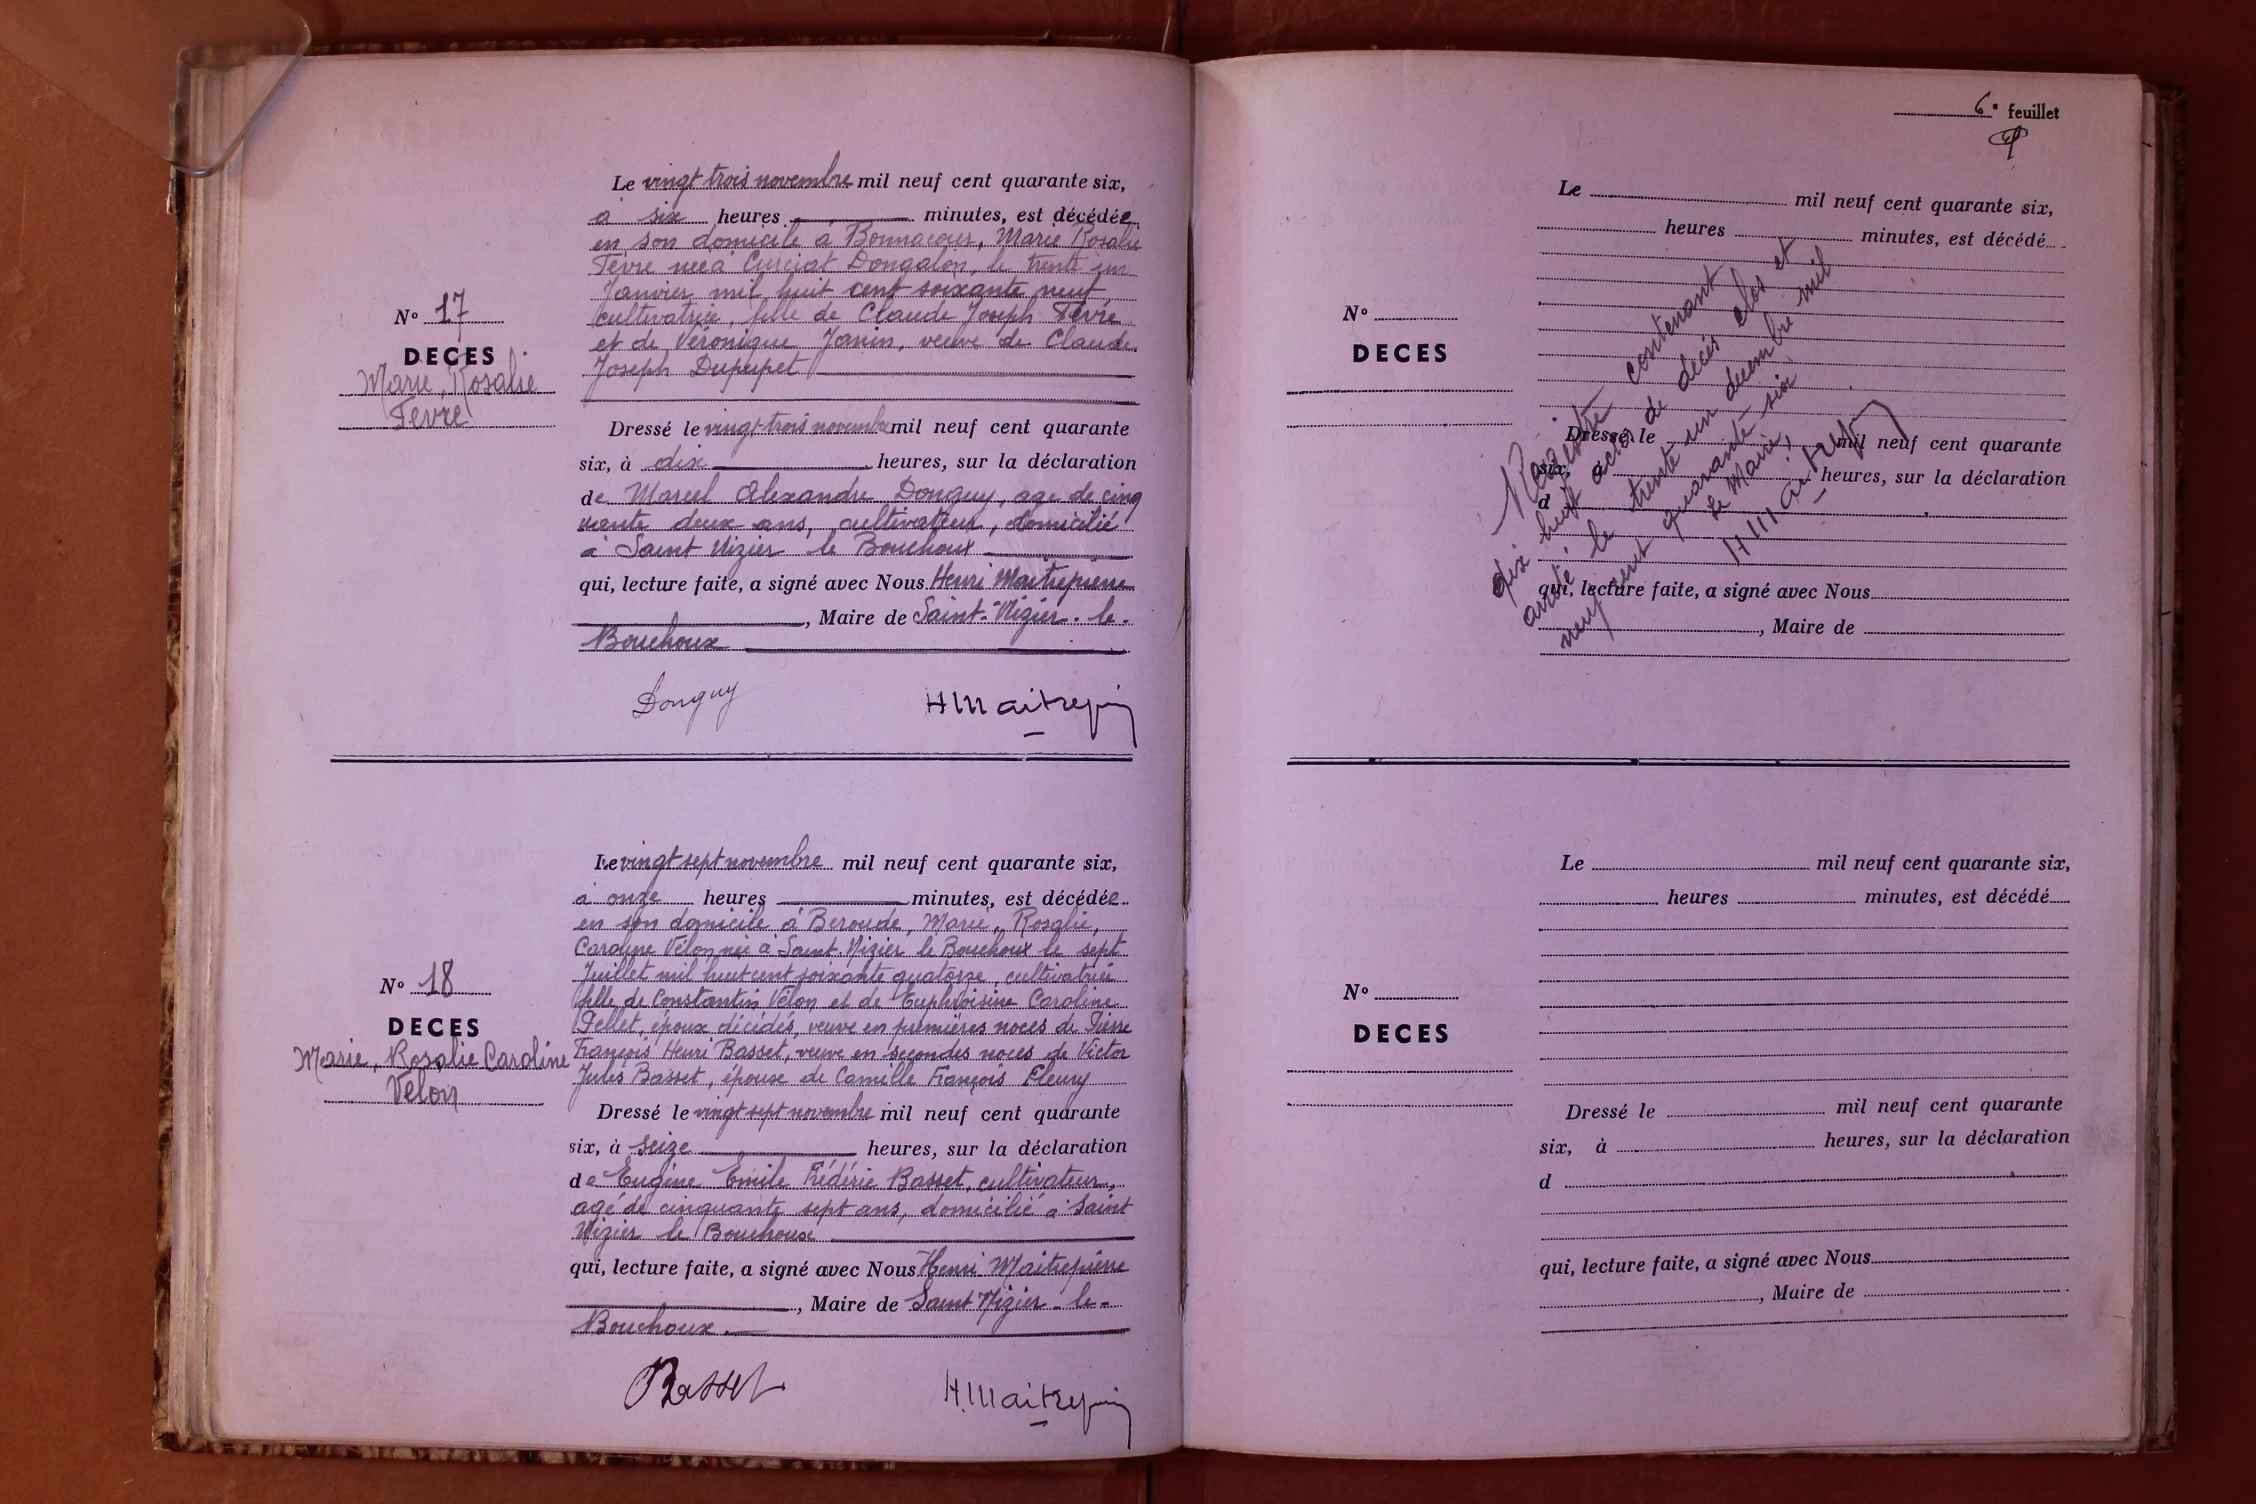 Le vingt trois novembre mil neuf cent quarante six,
à six heures minutes, est décédée
en son domicile à Bonnacour, Marie Rosalie
Fèvre née à Curciat Dongalon, le trente un
Janvier mil huit cent soixante neuf
cultivatrice, fille de Claude Joseph Fèvre
et de Véronique Janin, veuve de Claude
Joseph Dupupet
N° 17
DECES
Marie, Rosalie
Fevre
Dressé le vingt-trois novembre mil neuf cent quarante
six, à dix heures, sur la déclaration
de Marcel Alexandre Donguy, agé de cinq
uante deux ans, cultivateur, domicilié
à Saint Nizier le Bouchoux
qui, lecture faite, a signé avec Nous Henri Maitrepierre
, Maire de Saint-Nizier-le-
Bouchoux
Donguy HMaitrepierre
Le vingt sept novembre mil neuf cent quarante six,
à onze heures minutes, est décédée
en son domicile à Beroude, Marie, Rosalie,
Caroline Velon née à Saint-Nizier le Bouchoux le sept
Juillet mil huit cent soixante quatorze, cultivatrice
fille de Constantin Vélon et de Euphroisine Caroline
Pellet, époux décédés, veuve en premières noces de Pierre
François Henri Basset, veuve en secondes noces de Victor
Jules Basset, épouse de Camille François Fleury
N° 18
DECES
Marie, Rosalie Caroline
Velon
Dressé le vingt sept novembre mil neuf cent quarante
six, à seize heures, sur la déclaration
de Eugène Emile Frédéric Basset, cultivateur,
agé de cinquante sept ans, domicilié à Saint
Nizier le Bouchoux
qui, lecture faite, a signé avec Nous Henri Maitrepierre
, Maire de Saint Nizier-le-
Bouchoux.
Basset H.Maitrepierre
6e feuillet
Le mil neuf cent quarante six,
heures minutes, est décédé
N°
DECES
Dressé le mil neuf cent quarante
six, à heures, sur la déclaration
d
qui, lecture faite, a signé avec Nous
, Maire de
Registre contenant
dix huit actes de décès clos et
arrêté le trente un décembre mil
neuf cent quarante six
Le Maire,
HMaitrepierre
Le mil neuf cent quarante six,
heures minutes, est décédé
N°
DECES
Dressé le mil neuf cent quarante
six, à heures, sur la déclaration
d
qui, lecture faite, a signé avec Nous
, Maire de